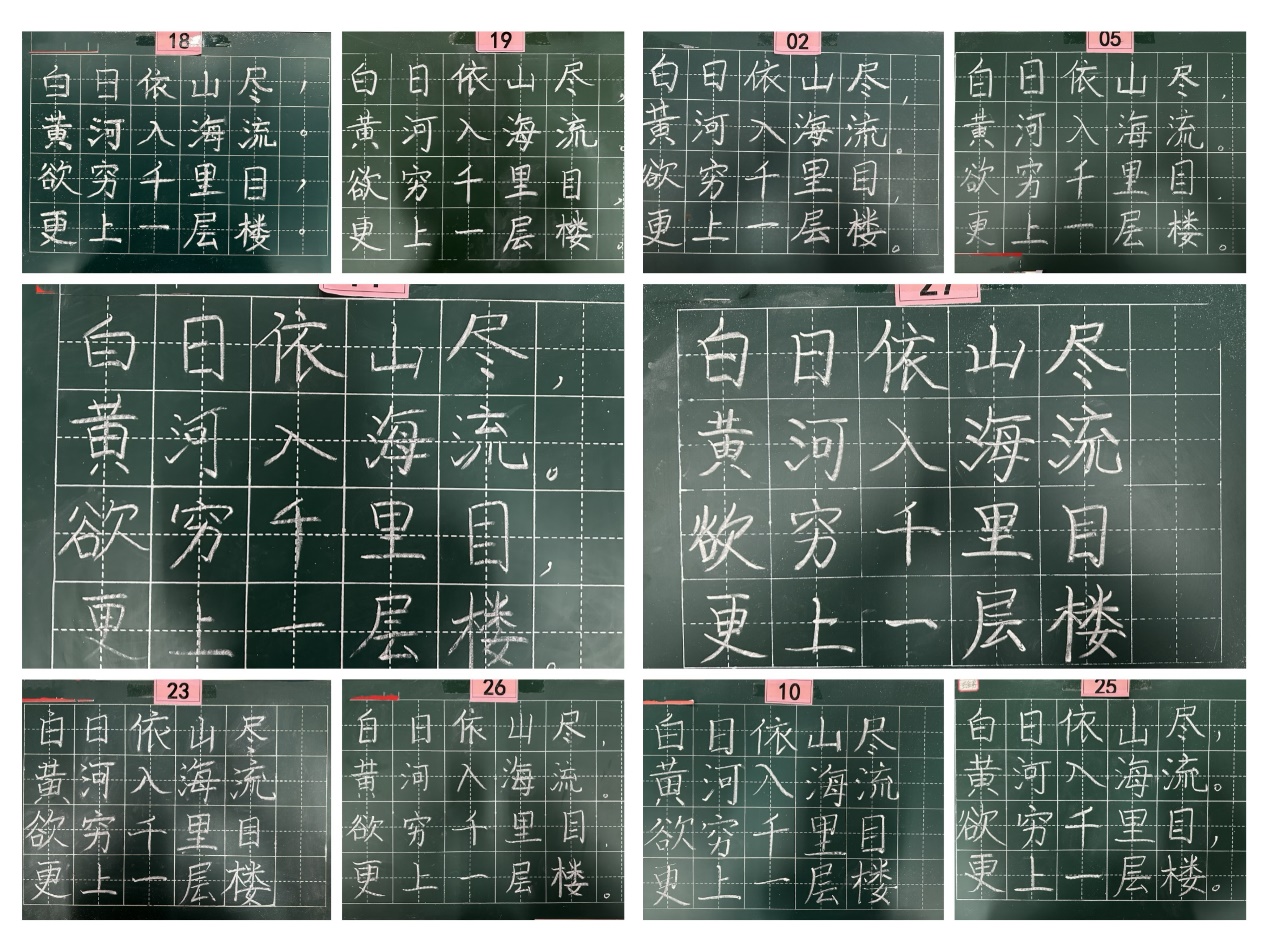 18
白日依山尽，
黄河入海流。
欲穷千里目，
更上一层楼。
19
白日依山尽，
黄河入海流。
欲穷千里目，
更上一层楼。
02
白日依山尽，
黄河入海流。
欲穷千里目，
更上一层楼。
05
白日依山尽，
黄河入海流。
欲穷千里目，
更上一层楼。
白日依山尽，
黄河入海流。
欲穷千里目，
更上一层楼。
27
白日依山尽
黄河入海流
欲穷千里目
更上一层楼
23
白日依山尽
黄河入海流
欲穷千里目
更上一层楼
26
白日依山尽，
黄河入海流。
欲穷千里目，
更上一层楼。
10
白日依山尽
黄河入海流
欲穷千里目
更上一层楼
25
白日依山尽，
黄河入海流。
欲穷千里目，
更上一层楼。